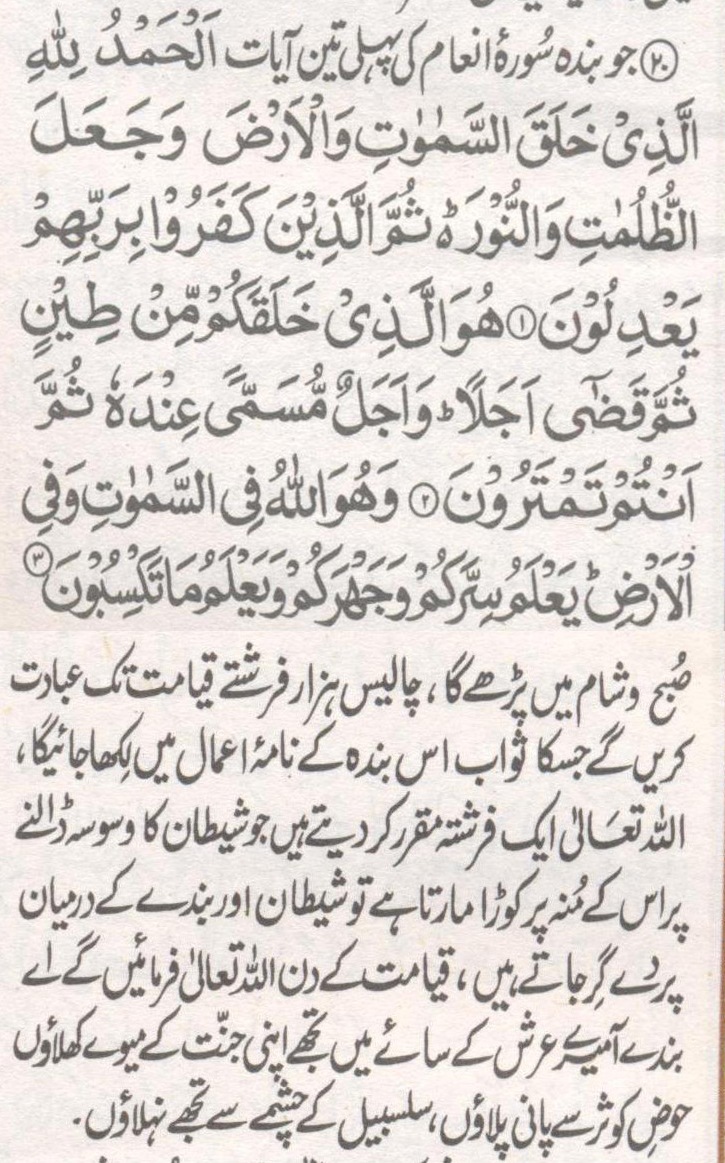 ۲۰ جو بندہ سُورۂ انعام کی پہلی تین آیات اَلْحَمْدُ لِلّٰهِ
الَّذِیْ خَلَقَ السَّمٰوٰتِ وَالْاَرْضَ وَجَعَلَ
الظُّلُمٰتِ وَالنُّوْرَ ۬ؕ ثُمَّ الَّذِیْنَ كَفَرُوْا بِرَبِّهِمْ
یَعْدِلُوْنَ ۱ هُوَ الَّذِیْ خَلَقَكُمْ مِّنْ طِیْنٍ
ثُمَّ قَضٰۤی اَجَلًا ؕ وَاَجَلٌ مُّسَمًّی عِنْدَهٗ ثُمَّ
اَنْتُمْ تَمْتَرُوْنَ ۲ وَهُوَ اللّٰهُ فِی السَّمٰوٰتِ وَفِی
الْاَرْضِ ؕ یَعْلَمُ سِرَّكُمْ وَجَهْرَكُمْ وَیَعْلَمُ مَا تَكْسِبُوْنَ ۳
صُبح وشام میں پڑھے گا، چالیس ہزار فرشتے قیامت تک عبادت
کریں گے جسکا ثواب اس بندہ کے نامۂ اعمال میں لِکھا جائیگا،
اللہ تعَالیٰ ایک فرشتہ مقرر کر دیتے ہیں جو شیطان کا وسوسہ ڈالنے
پر اس کے مُنہ پر کوڑا مارتا ہے تو شیطان اور بندے کے درمیان
پردے گِر جاتے ہیں، قیامت کے دن اللہ تعالیٰ فرمائیں گے اے
بندے آ میرے عرش کے سائے میں تجھے اپنی جنّت کے میوے کھلاؤں
حوضِ کوثر سے پانی پلاؤں، سلسبیل کے چشمے سے تجھے نہلاؤں۔